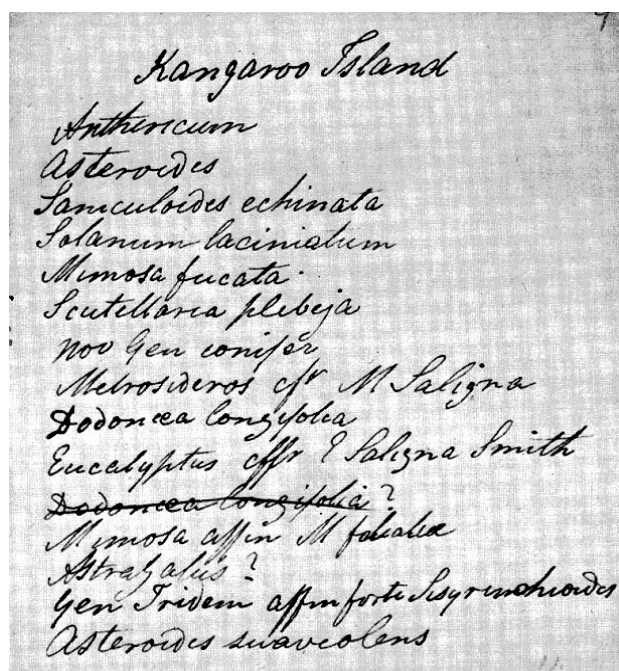 Kangaroo Island
Anthericum
Asteroides
Saniculoides echinata
Solanum laciniatum
Mimosa fucata
Scutellaria plebeja
nov Gen conifer
Metrosideros cffr M Saligna
Dodonæa longifolia
Eucalyptus cffr ? Saligna Smith
Dodonæa longifolia ?
Mimosa affin M
Astragalus ?
Gen Tridem affin forte Sisyrinchioides
Asteroides suaveolens